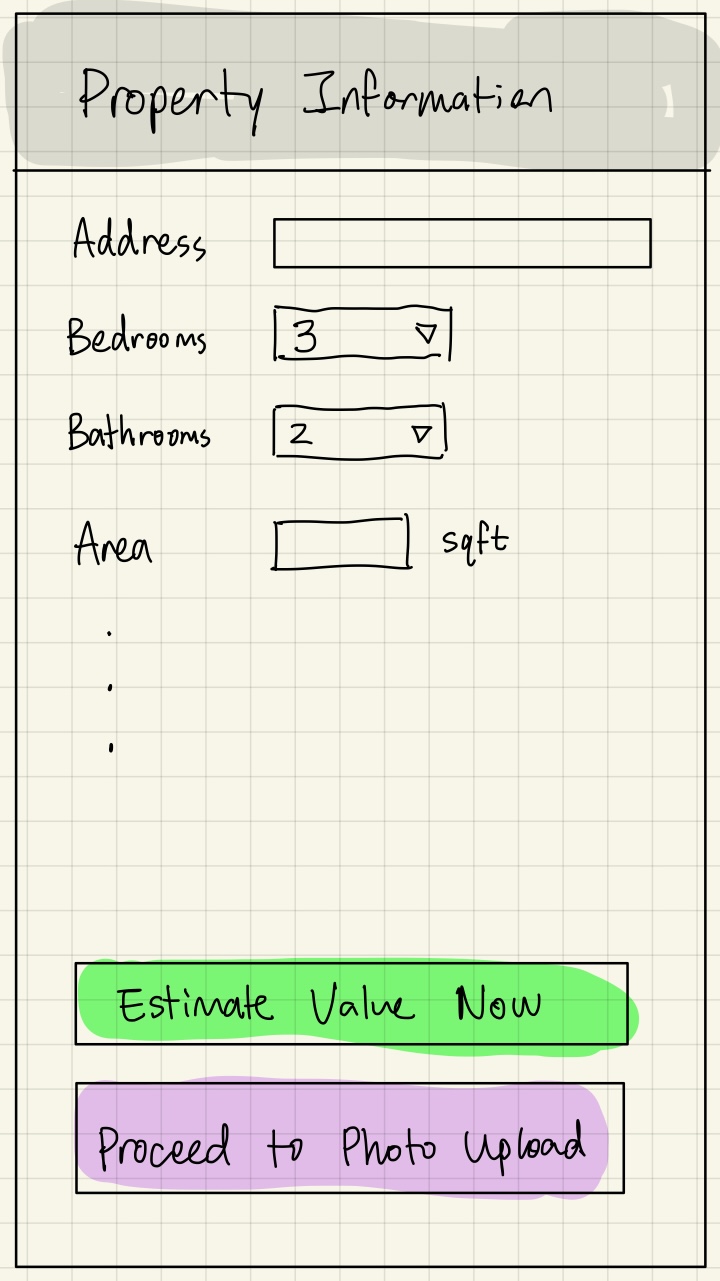 Property Information
Address
Bedrooms 3
Bathrooms 2
Area sqft
Estimate Value Now
Proceed to Photo Upload